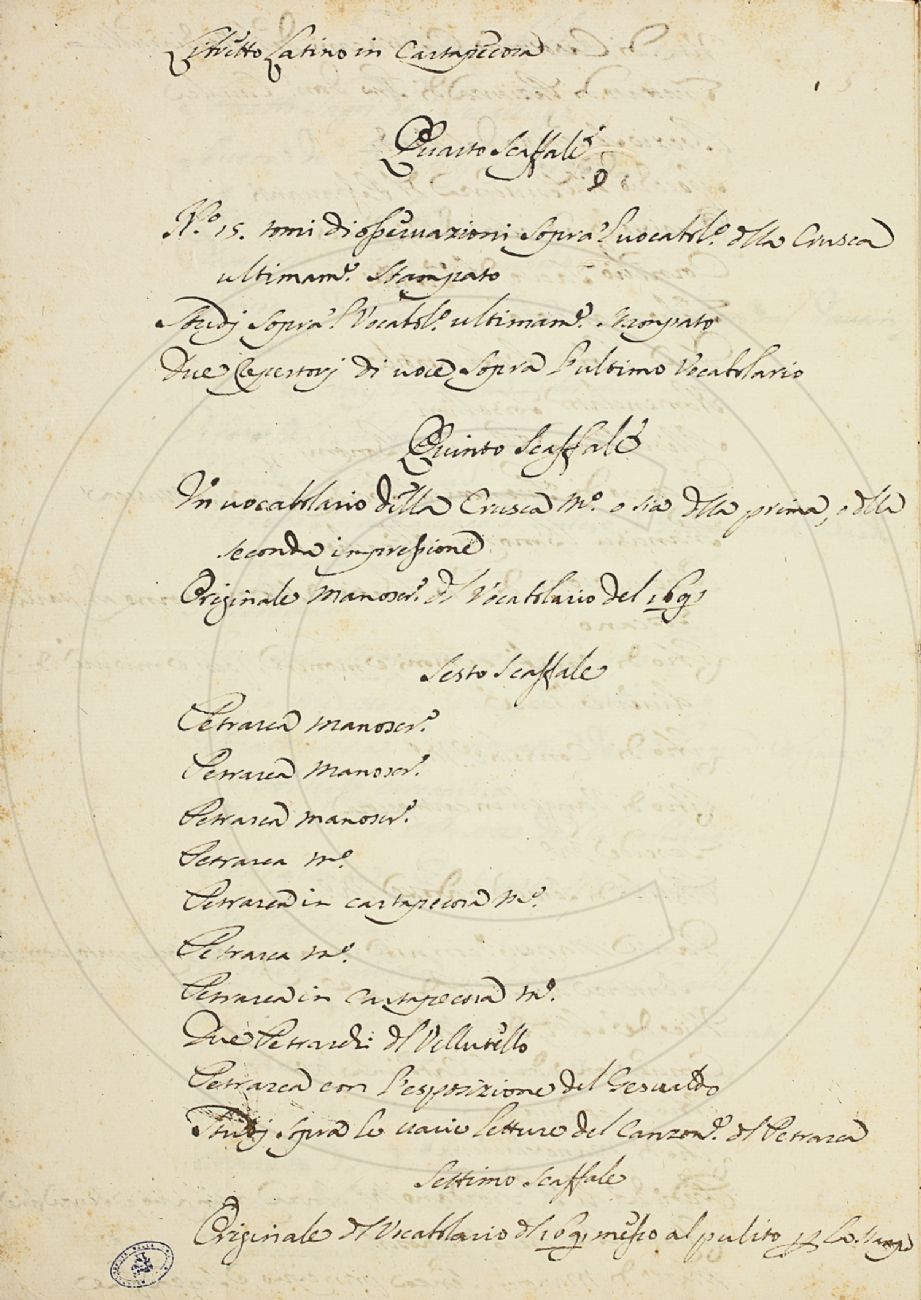 Libretto Latino in Cartapecora
Quarto Scaffale
N.o 15. tomi di osservazioni sopra l'vocabl.o dlla Crusca
ultimam.e Stampato
Studj sopra l'Vocabl.o ultimam.e Stampato
Due Repertorj di voce sopra l'ultimo Vocablario
Quinto Scaffale
Un vocablario della Crusca M.o o sia dlla prima, o dlla
seconda impressione
Originale Manoscr.o dl Vocablario del 1691
Sesto Scaffale
Petrarca manoscr.o
Petrarca Manoscr.o
Petrarca manoscr.o
Petrarca M.o
Petrarca in cartapecora M.o
Petrarca M.o
Petrarca in cartapecora M.o
Due Petrarchi dl Vellutello
Petrarca con l'esposizione del Gesualdo
Studj sopra le varie letture del Canzon.e dl Petrarca
Settimo Scaffale
Originale dl Vocablario dl 1691 messo al pulito p la Stampa